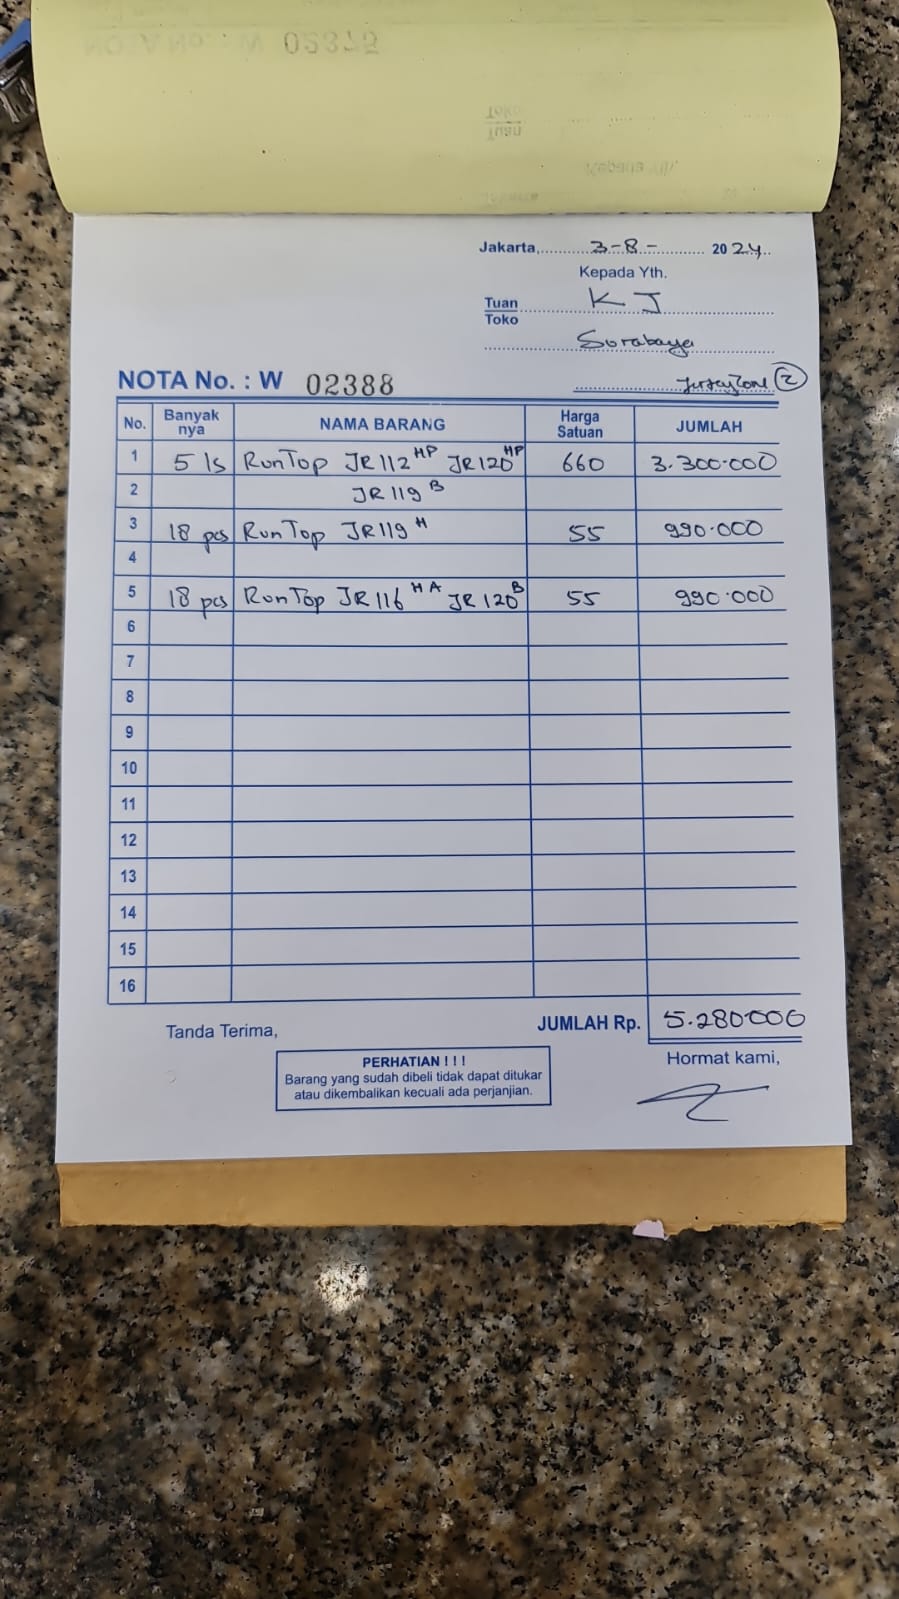 NOTA No. : W 02375
Toko
Tuan
Kepada Yth.
Jakarta
Jakarta, 3-8- 2024
Kepada Yth.
Tuan K J
Toko
Surabaya
NOTA No. : W 02388 JerseyZone 2
No. Banyak nya NAMA BARANG Harga Satuan JUMLAH
1 5 ls RunTop JR112 HP JR120 HP 660 3.300.000
2 JR119 B
3 18 pcs RunTop JR119 H 55 990.000
4
5 18 pcs RunTop JR116 HA JR120 B 55 990.000
6
7
8
9
10
11
12
13
14
15
16
Tanda Terima, JUMLAH Rp. 5.280.000
Hormat kami,
PERHATIAN ! ! !
Barang yang sudah dibeli tidak dapat ditukar
atau dikembalikan kecuali ada perjanjian.